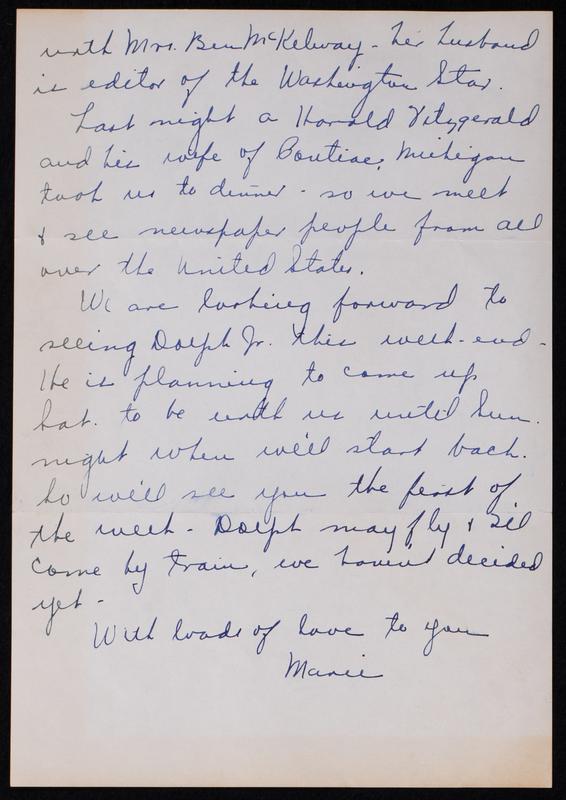 with Mrs. Ben McKelway - her husband
is editor of the Washington Star.
Last night a Harold Fitzgerald
and his wife of Pontiac, Michigan
took us to dinner - so we meet
& see newspaper people from all
over the United States.
We are looking forward to
seeing Dolph Jr. this week-end -
He is planning to come up
Sat. to be with us until Sun.
night when we'll start back.
So we'll see you the first of
the week - Dolph may fly & I'll
come by train, we haven't decided
yet -
With loads of love to you
Marie